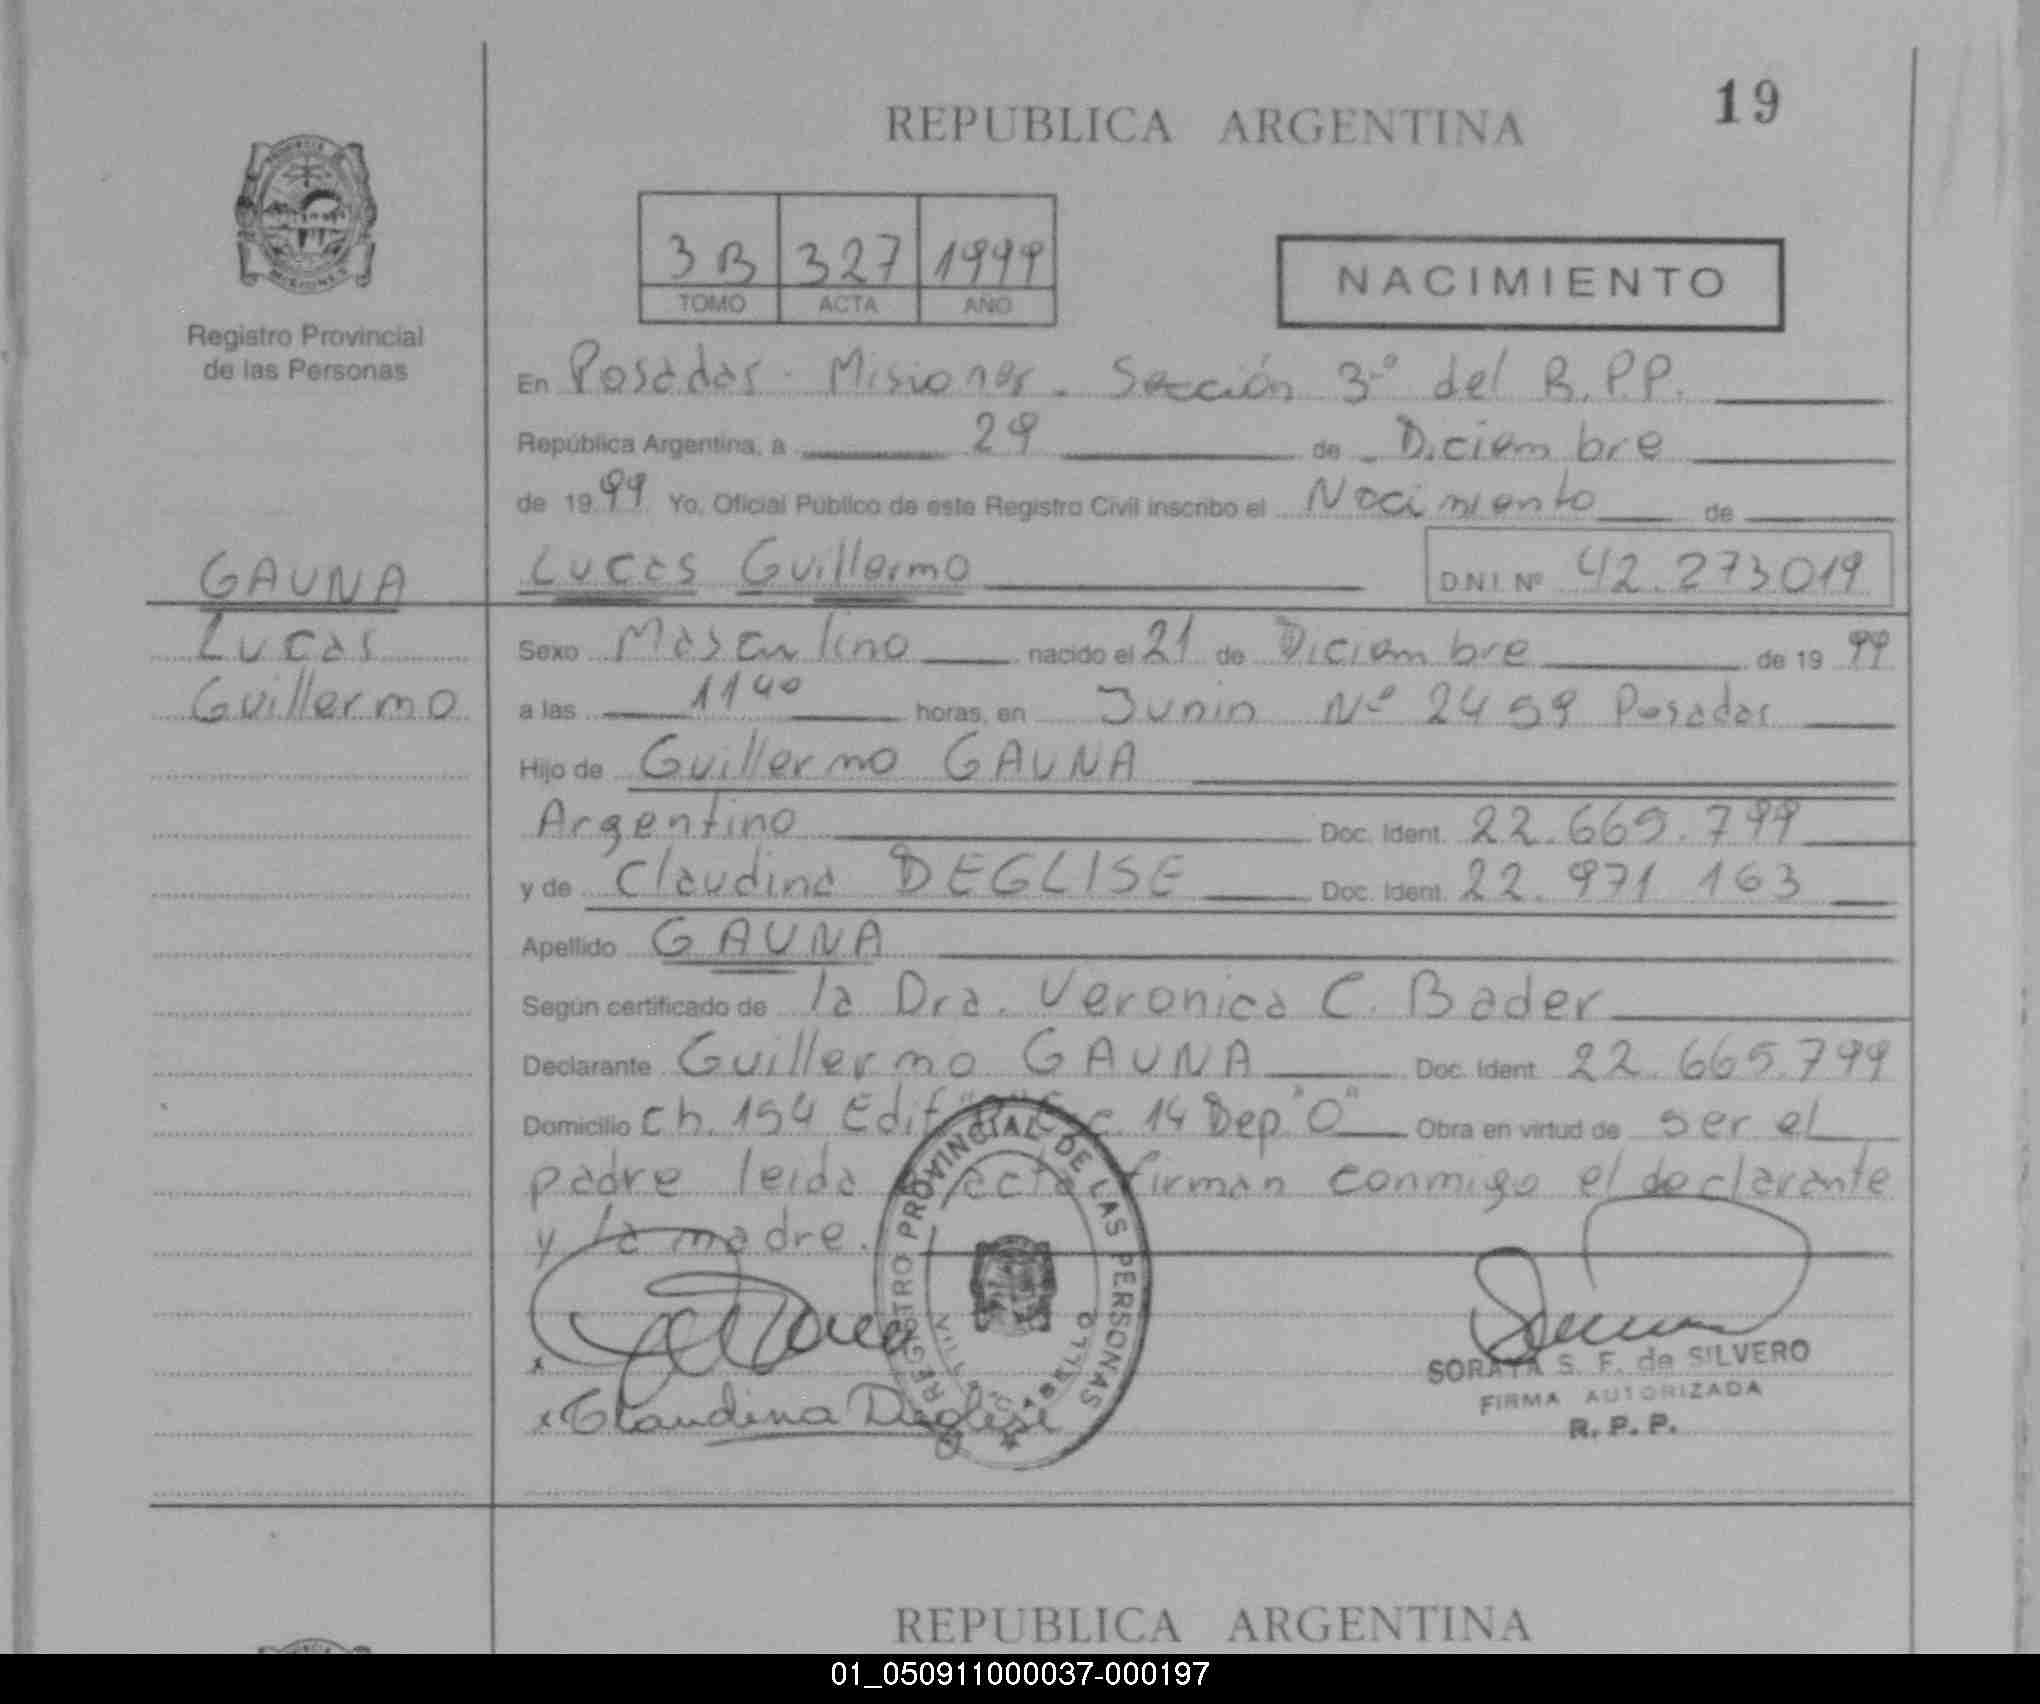 19
REPUBLICA ARGENTINA
3B 327 1999
TOMO ACTA AÑO
NACIMIENTO
Registro Provincial
de las Personas
En Posadas - Misiones - Sección 3º del R.P.P.
República Argentina, a 29 de Diciembre
de 1999 Yo, Oficial Público de este Registro Civil inscribo el Nacimiento de
GAUNA
Lucas Guillermo D.N.I. Nº 42.273019
Lucas
Guillermo
Sexo Masculino nacido el 21 de Diciembre de 1999
a las 1140 horas, en Junin Nº 2459 Posadas
Hijo de Guillermo GAUNA
Argentino Doc. Ident. 22.665.799
y de Claudina DEGLISE Doc. Ident. 22.971 163
Apellido GAUNA
Según certificado de la Dra. Veronica C. Bader
Declarante Guillermo GAUNA Doc. Ident. 22.665.799
Domicilio Ch. 154 Edif. 14 Dep "O" Obra en virtud de ser el
padre leida acta firman conmigo el declarante
y la madre.
REGISTRO PROVINCIAL DE LAS PERSONAS
Claudina Deglise
SORAYA S. F. de SILVERO
FIRMA AUTORIZADA
R. P. P.
REPUBLICA ARGENTINA
01_050911000037-000197